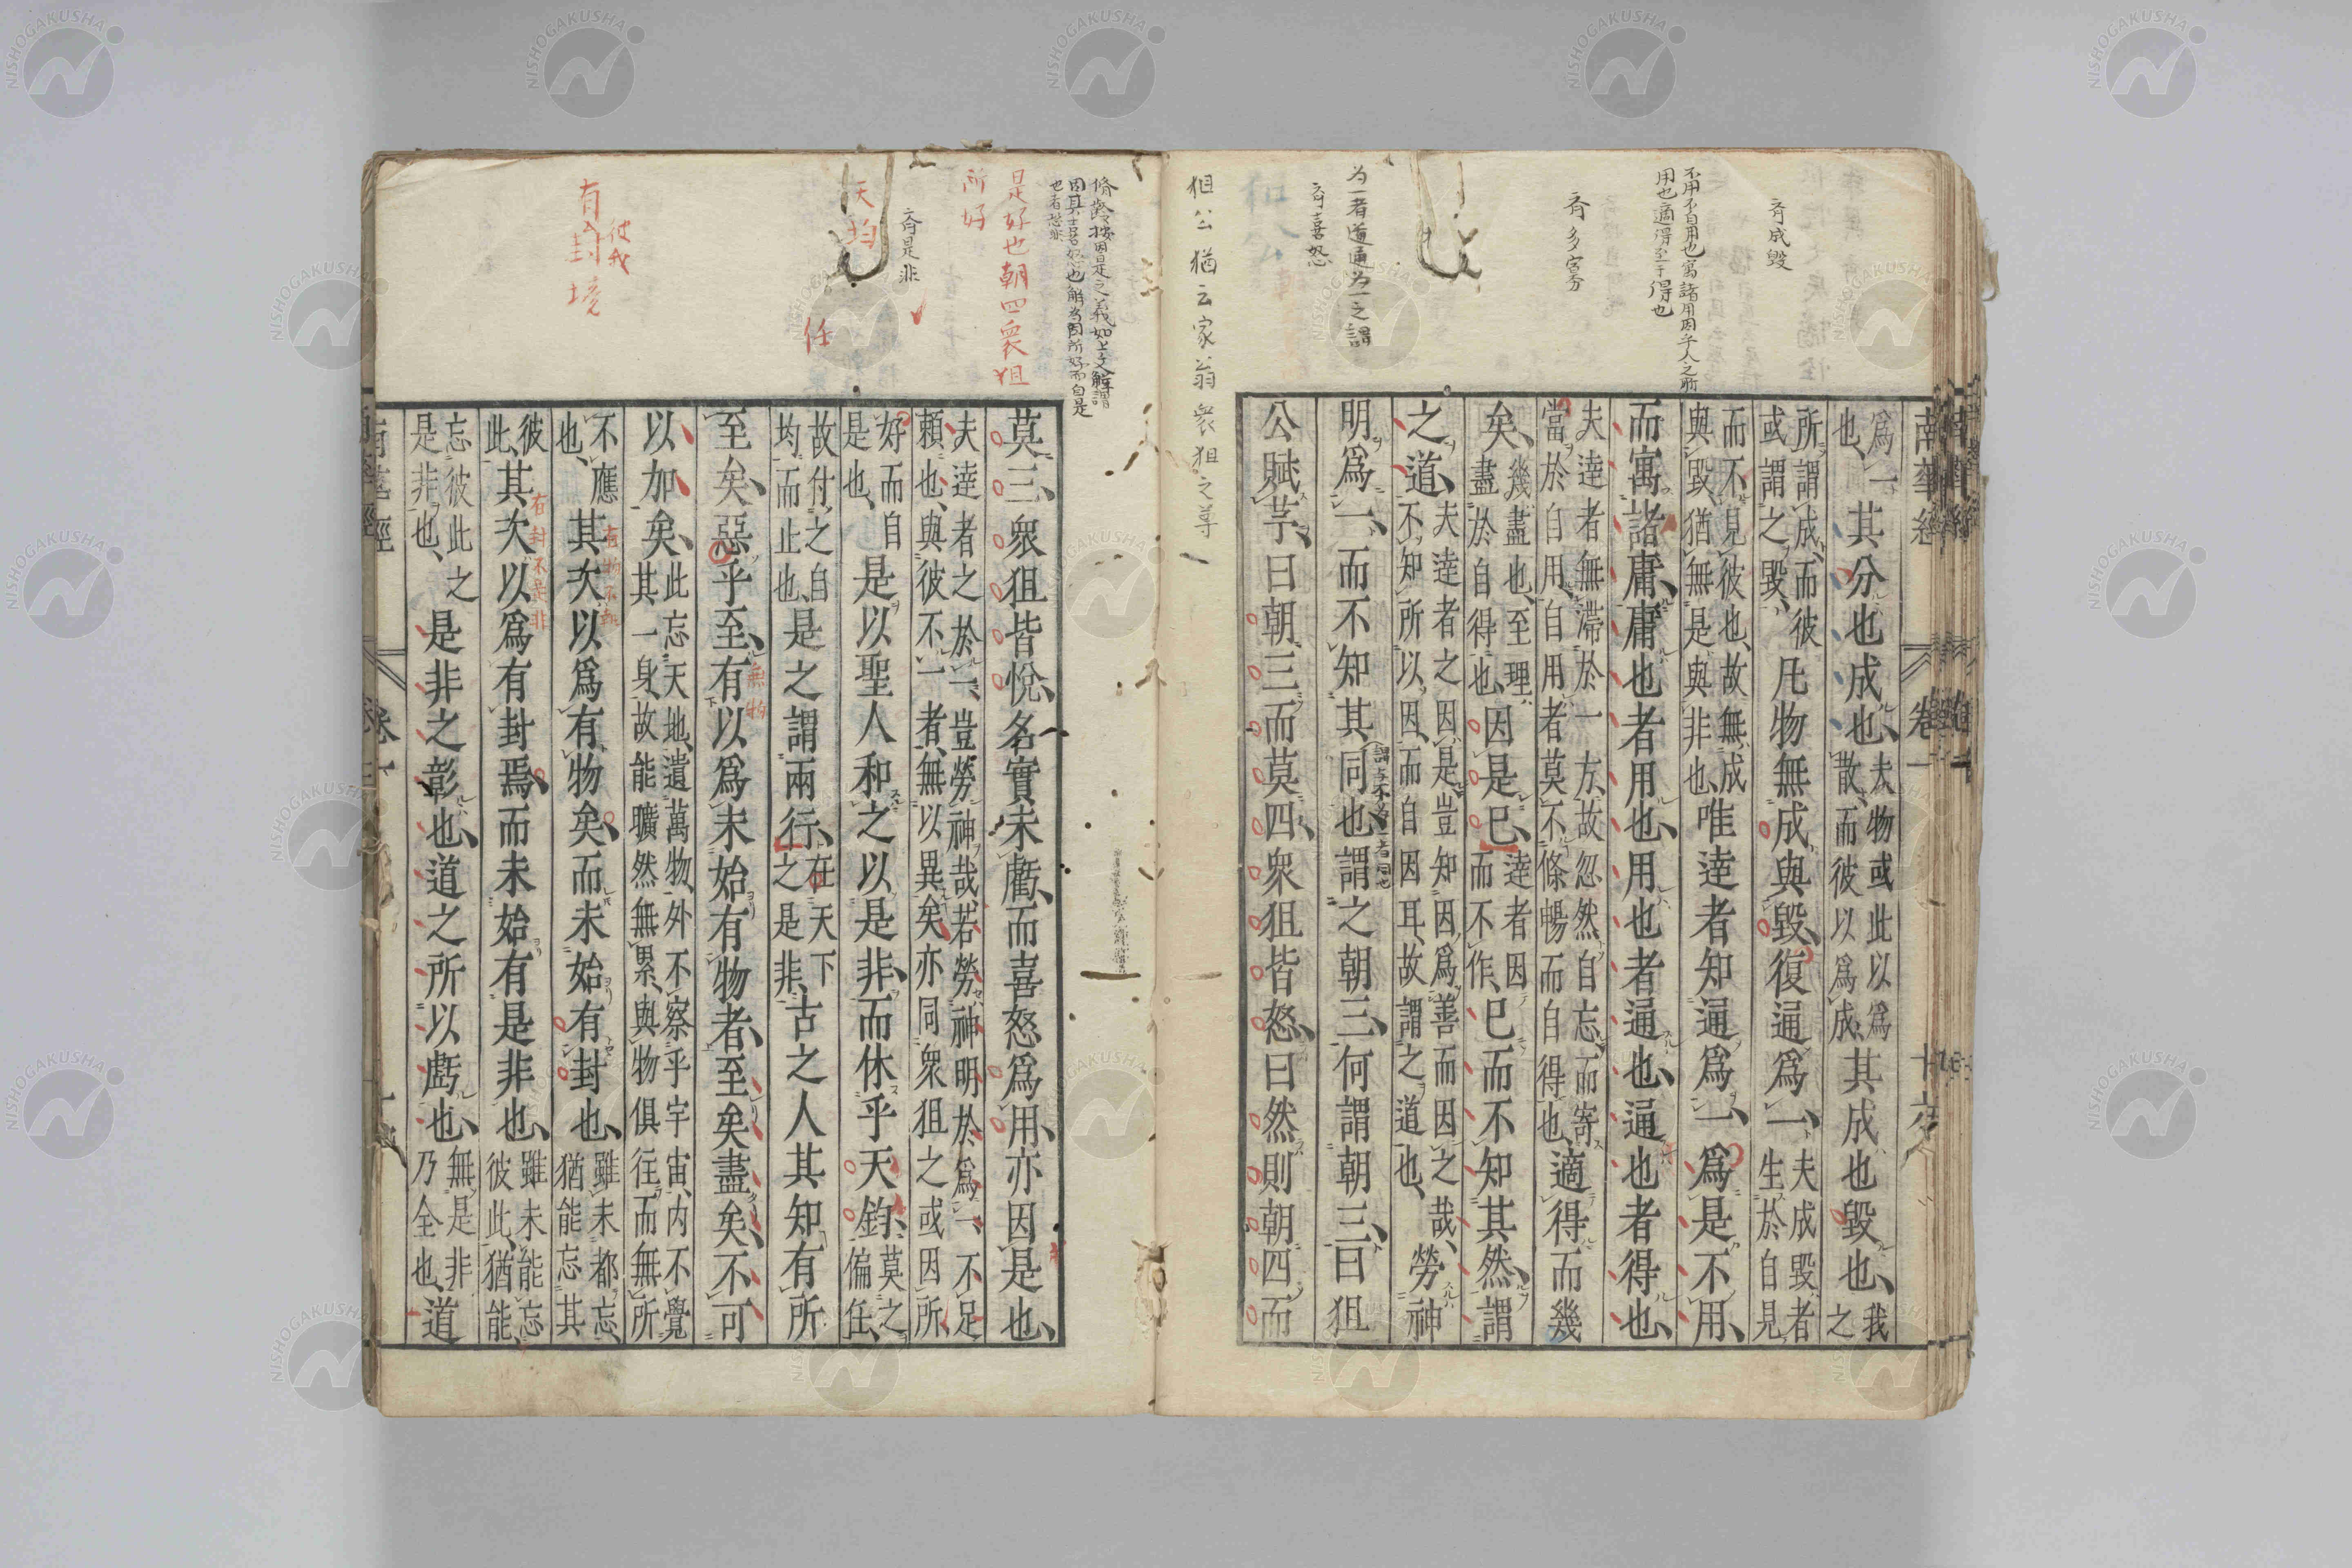 不用不自用也寓諸用因乎人之所
用也適得至于得也
斉成毀
斉多寡
为一者道通为一之謂
斉喜怒
狙公猶云家翁衆狙之尊
南華經
卷一
十六
爲一也、其分也成也、夫物或此以爲散而彼以爲成、其成也毀也、我之
所謂成、而彼或謂之毀、凡物無成與毀、復通爲一、夫成毀者生於自見
而不見彼也、故無成與毀、猶無是與非也、唯達者知通爲一、爲是不用、
而寓諸庸、庸也者用也、用也者通也、通也者得也、
夫達者無滯於一方、故忽然自忘、而寄當於自用、自用者莫不條暢而自得也、適得而幾
矣、幾盡也、至理盡於自得也、因是已、達者因而不作、已而不知其然、謂
之道、夫達者之因是豈知因爲善而因之哉、不知所以因而自因耳、故謂之道也、勞神
明爲一、而不知其同也、謂之朝三、何謂朝三、曰狙
公賦芧、曰朝三而莫四、衆狙皆怒、曰然則朝四而
是好也朝四衆狙
所好
斉是非
天均
任
彼我
有封境
莫三、衆狙皆悅、名實未虧、而喜怒爲用、亦因是也、
夫達者之於一、豈勞神哉、若勞神明於爲一、不足賴也、與彼不一者、無以異矣、亦同衆狙之或因所
好而自是也、是以聖人和之以是非、而休乎天鈞、莫之偏任、
故付之自均而止也、是之謂兩行、任天下之是非、古之人其知有所
至矣、惡乎至、有以爲未始有物者、至矣盡矣、不可
以加矣、此忘天地、遺萬物、外不察乎宇宙、内不覺其一身、故能曠然無累、與物俱往、而無所
不應也、其次以爲有物矣、而未始有封也、雖未都忘、猶能忘其
彼此、其次以爲有封焉、而未始有是非也、雖未能忘彼此、猶能
忘彼此之是非也、是非之彰也、道之所以虧也、無是非乃全也、道
無物
有物不
有封不是非
南華經
卷一